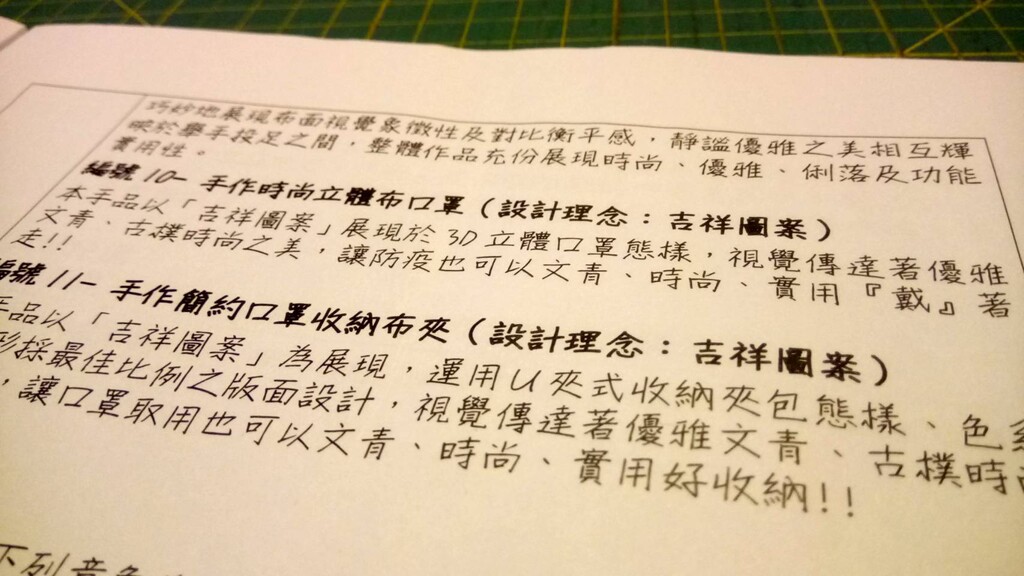 巧妙地展現布面視覺象徵性及對比衡平感，靜謐優雅之美相互輝
映於舉手投足之間，整體作品充份展現時尚、優雅、俐落及功能
實用性。
編號10-手作時尚立體布口罩（設計理念：吉祥圖案）
本手品以「吉祥圖案」展現於3D立體口罩態樣，視覺傳達著優雅
文青、古樸時尚之美，讓防疫也可以文青、時尚、實用『戴』著
走!!
編號11-手作簡約口罩收納布夾（設計理念：吉祥圖案）
手品以「吉祥圖案」為展現，運用U夾式收納夾包態樣、色系
形採最佳比例之版面設計，視覺傳達著優雅文青、古樸時尚
，讓口罩取用也可以文青、時尚、實用好收納!!
下列